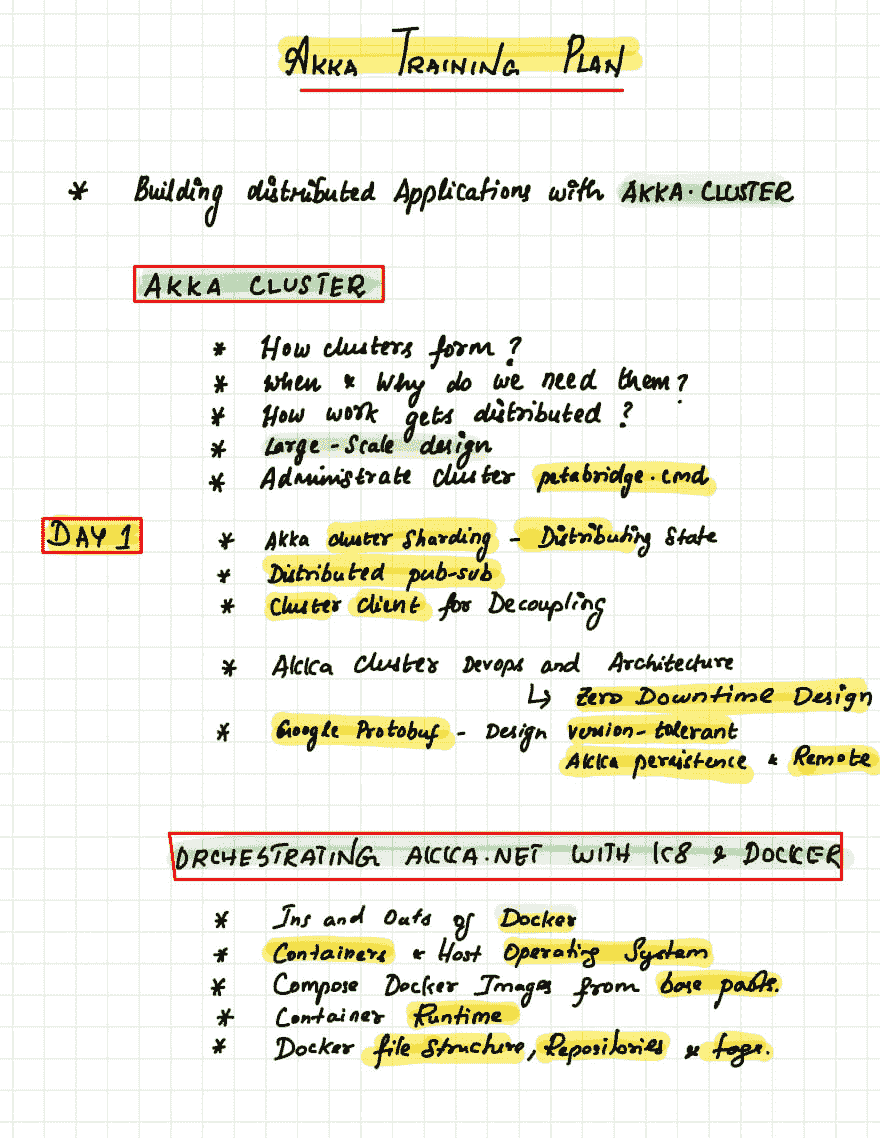 AKKA TRAINING PLAN
* Building distributed Applications with AKKA.CLUSTER
AKKA CLUSTER
* How clusters form?
* When & Why do we need them?
* How work gets distributed?
* Large-Scale design
* Administrate cluster petabridge.cmd
DAY 1
* Akka cluster Sharding - Distributing State
* Distributed pub-sub
* Cluster Client for Decoupling
* Akka Cluster Devops and Architecture
↳ Zero Downtime Design
* Google Protobuf - Design version-tolerant
Akka persistence & Remote
ORCHESTRATING AKKA.NET WITH K8 & DOCKER
* Ins and Outs of Docker
* Containers & Host Operating System
* Compose Docker Images from base parts.
* Container Runtime
* Docker file structure, Repositories & tags.